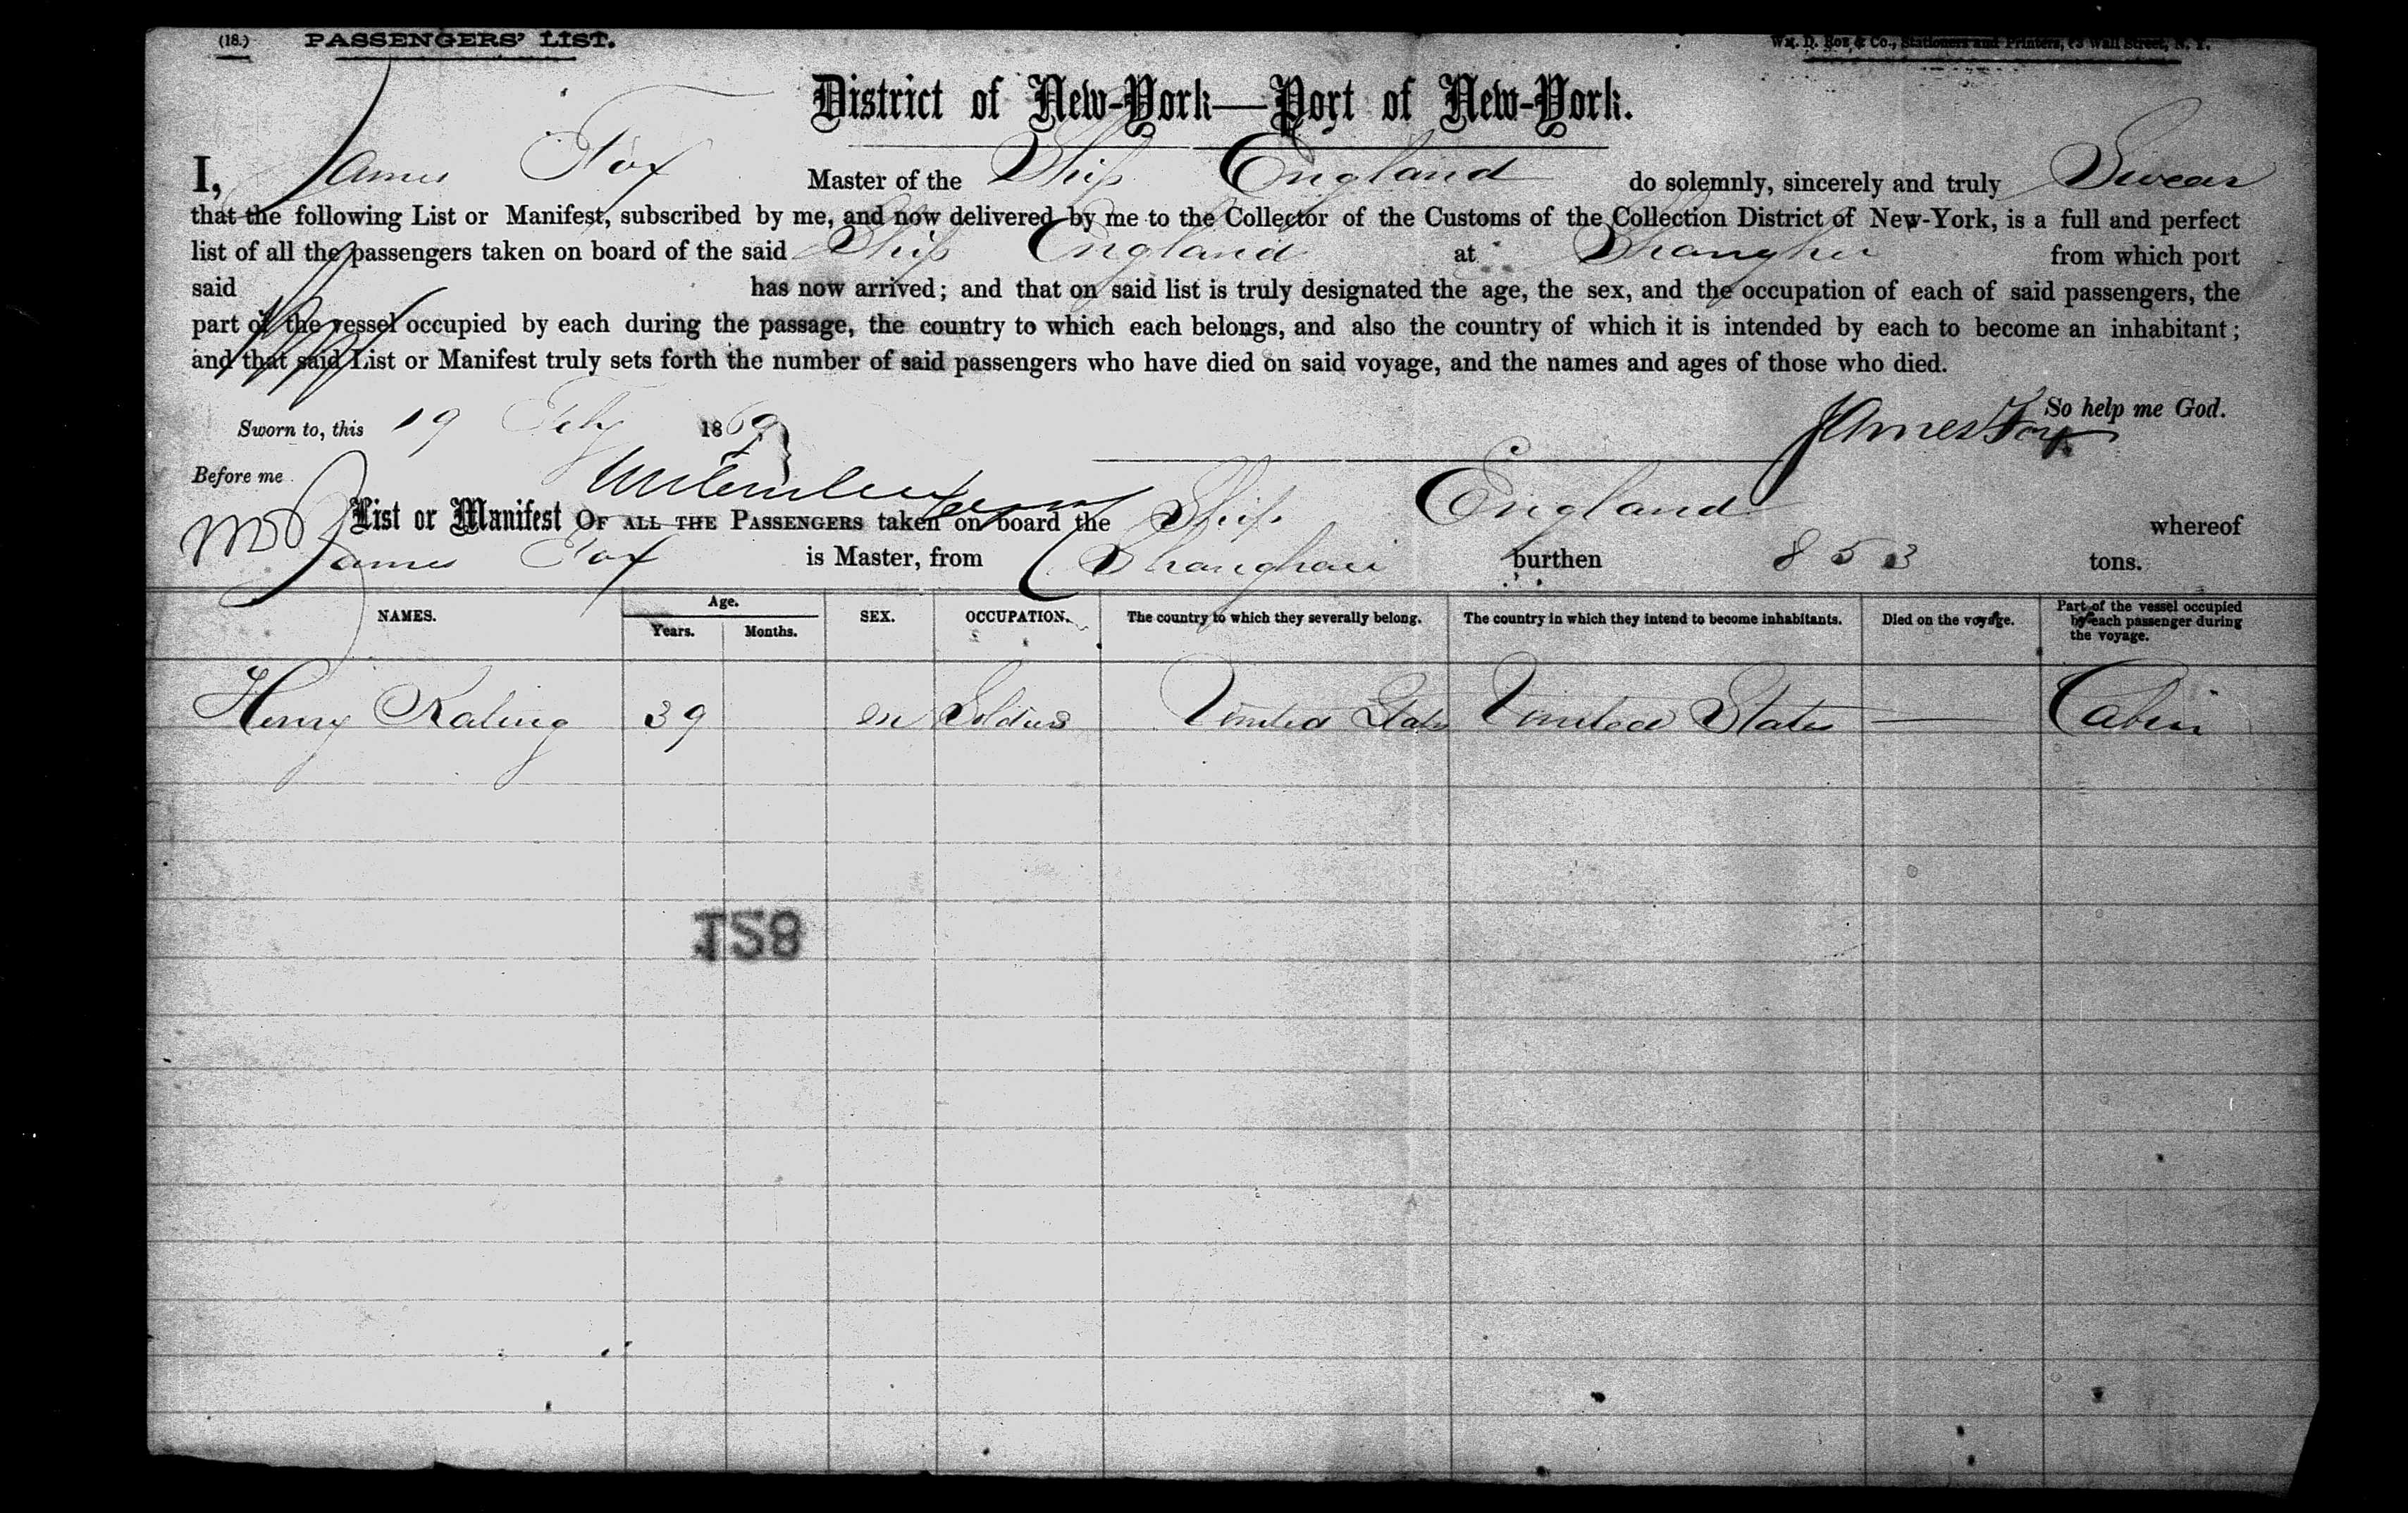 (18.) PASSENGERS' LIST. Wm. D. Roe & Co., Stationers and Printers, Wall Street, N. Y.
District of New-York—Port of New-York.
I, James Fox Master of the Ship England do solemnly, sincerely and truly Swear
that the following List or Manifest, subscribed by me, and now delivered by me to the Collector of the Customs of the Collection District of New-York, is a full and perfect
list of all the passengers taken on board of the said Ship England at Shanghai from which port
said has now arrived; and that on said list is truly designated the age, the sex, and the occupation of each of said passengers, the
part of the vessel occupied by each during the passage, the country to which each belongs, and also the country of which it is intended by each to become an inhabitant;
and that said List or Manifest truly sets forth the number of said passengers who have died on said voyage, and the names and ages of those who died.
So help me God.
Sworn to, this 19 Feby 1869 James Fox
Before me
List or Manifest OF ALL THE PASSENGERS taken on board the Ship England whereof
James Fox is Master, from Shanghai burthen 853 tons.
NAMES. Age. Years. Months. SEX. OCCUPATION. The country to which they severally belong. The country in which they intend to become inhabitants. Died on the voyage. Part of the vessel occupied by each passenger during the voyage.
Henry 39 m Soldier United States United States — Cabin
128